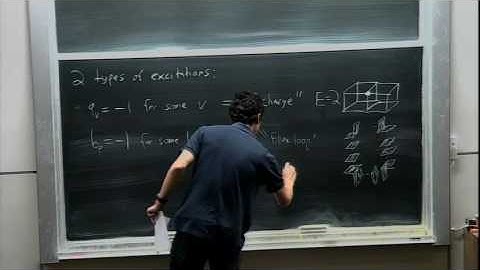 2 types of excitations:
- q_v = -1 for some v = "charge" E=2
b_p = -1 for some "flux loop"